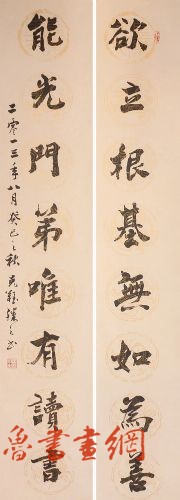 欲立根基無如為善
能光門第唯有讀書
二零一三年八月癸巳之秋
魯書畫網